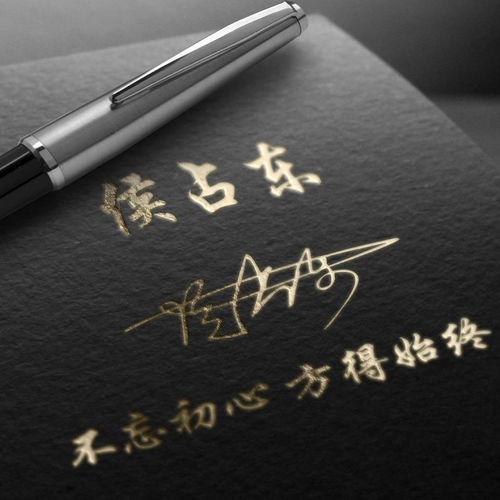 侯占东
不忘初心 方得始终